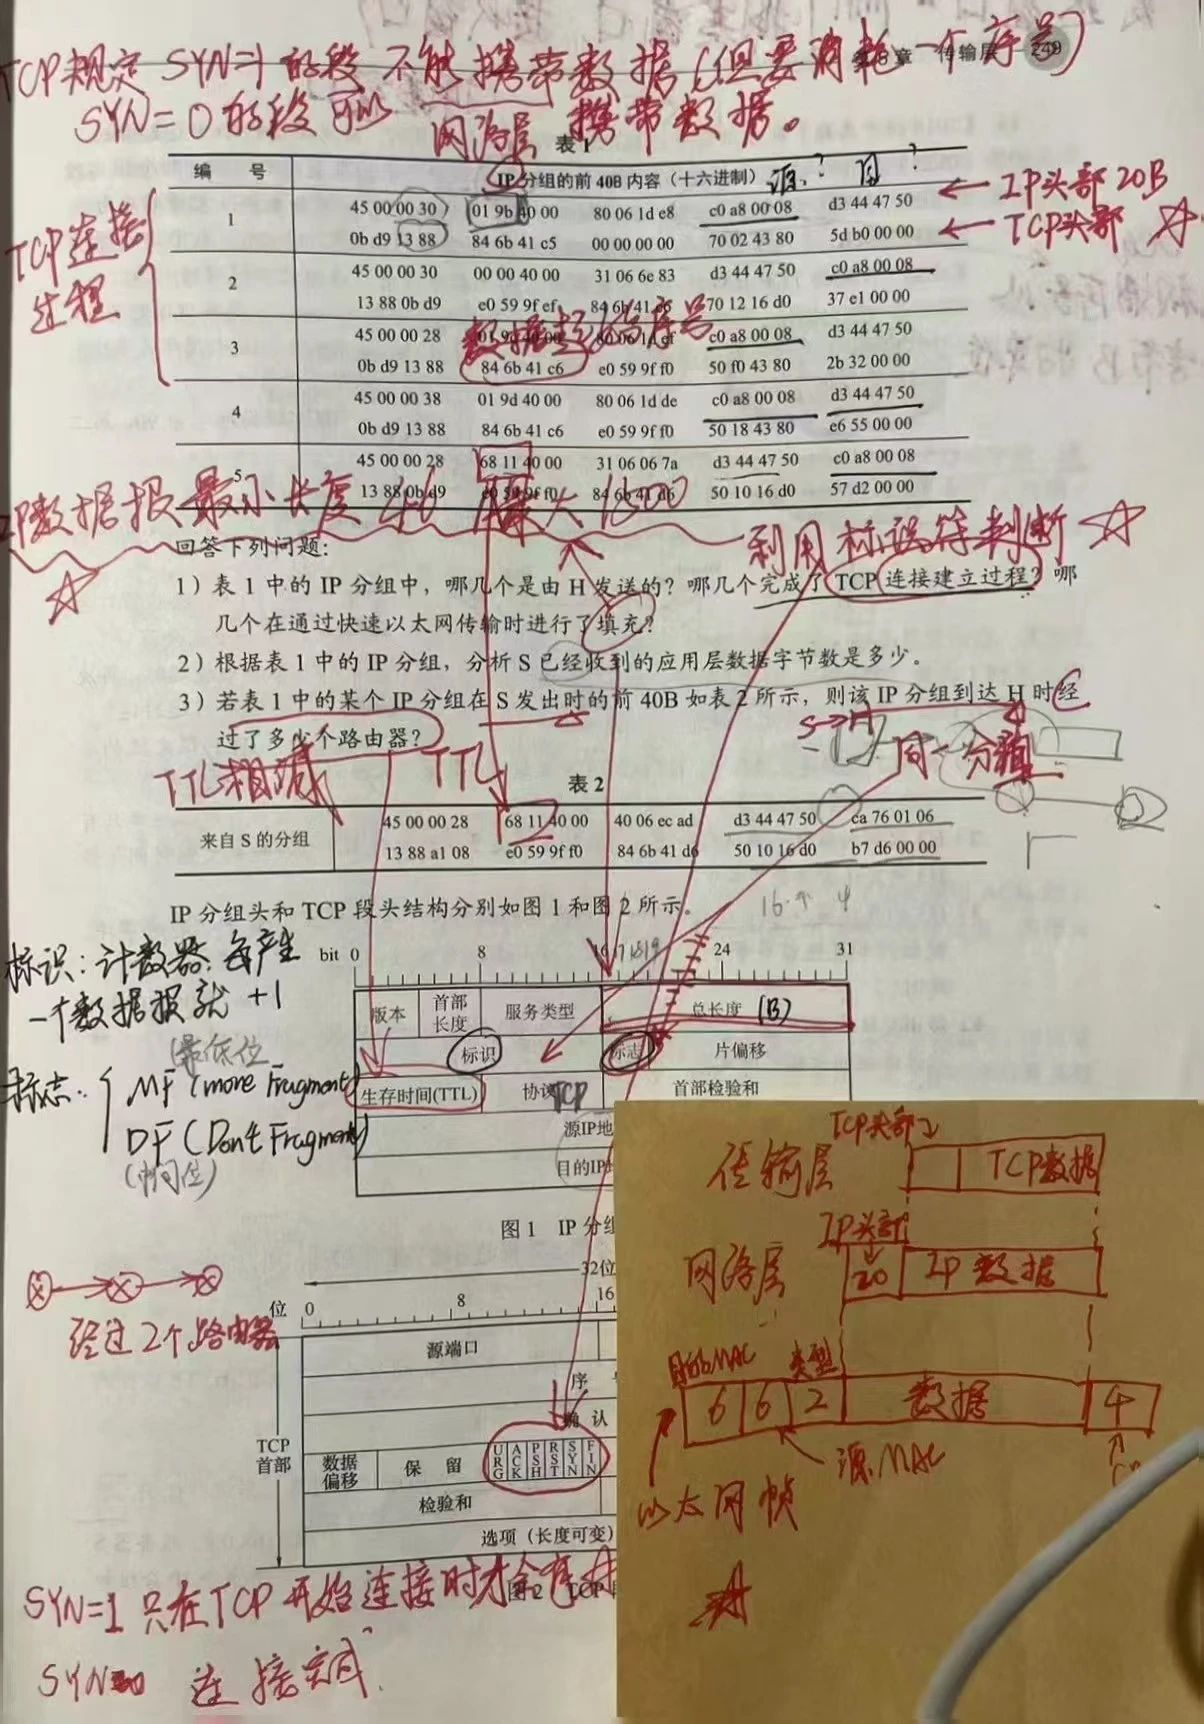 TCP规定 SYN=1的段 不能携带数据(但要消耗一个序号)
章 传输层 249
SYN=0的段可以 携带数据。
网络层 表1
编 号 IP分组的前 40B 内容(十六进制) 源:? 目 ?
1 45 00 00 30 01 9b 40 00 80 06 1d e8 c0 a8 00 08 d3 44 47 50
0b d9 13 88 84 6b 41 c5 00 00 00 00 70 02 43 80 5d b0 00 00
← IP头部 20B
← TCP头部
TCP连接
过程
2 45 00 00 30 00 00 40 00 31 06 6e 83 d3 44 47 50 c0 a8 00 08
13 88 0b d9 e0 59 9f ef 84 6b 41 c6 70 12 16 d0 37 e1 00 00
数据起始序号
3 45 00 00 28 01 9c 40 00 80 06 1d ef c0 a8 00 08 d3 44 47 50
0b d9 13 88 84 6b 41 c6 e0 59 9f f0 50 f0 43 80 2b 32 00 00
4 45 00 00 38 01 9d 40 00 80 06 1d de c0 a8 00 08 d3 44 47 50
0b d9 13 88 84 6b 41 c6 e0 59 9f f0 50 18 43 80 e6 55 00 00
5 45 00 00 28 68 11 40 00 31 06 06 7a d3 44 47 50 c0 a8 00 08
13 88 0b d9 e0 59 9f f0 84 6b 41 d6 50 10 16 d0 57 d2 00 00
IP数据报最小长度 46 最大1500
利用标识符判断
回答下列问题:
1)表 1 中的 IP 分组中,哪几个是由 H 发送的?哪几个完成了 TCP 连接建立过程?哪
几个在通过快速以太网传输时进行了填充?
2)根据表 1 中的 IP 分组,分析 S 已经收到的应用层数据字节数是多少。
3)若表 1 中的某个 IP 分组在 S 发出时的前 40B 如表 2 所示,则该 IP 分组到达 H 时经
过了多少个路由器?
S→H
同一分组
TTL相减 TTL
表 2
来自 S 的分组 45 00 00 28 68 11 40 00 40 06 ec ad d3 44 47 50 ca 76 01 06
13 88 a1 08 e0 59 9f f0 84 6b 41 d6 50 10 16 d0 b7 d6 00 00
IP 分组头和 TCP 段头结构分别如图 1 和图 2 所示。
bit 0 8 16 24 31
标识:计数器.每产生
一个数据报就 +1
版本 首部长度 服务类型 总长度 (B)
标识 标志 片偏移
(最低位
标志: MF (more Fragment)
生存时间(TTL) 协议 TCP 首部检验和
DF (Don't Fragment)
(中间位)
源IP地
目的IP地
图 1 IP 分组
32位
位 0 8 16
经过2个路由器
源端口
序 号
确 认
TCP首部
数据偏移 保 留 URG ACK PSH RST SYN FIN
检验和
选项(长度可变)
图2 TCP
SYN=1 只在TCP 开始连接时才会有
SYN=0 连接完成.
TCP头部
传输层 TCP数据
IP头部
网络层 20 IP 数据
目的MAC 类型
6 6 2 数据 4
源MAC
以太网帧